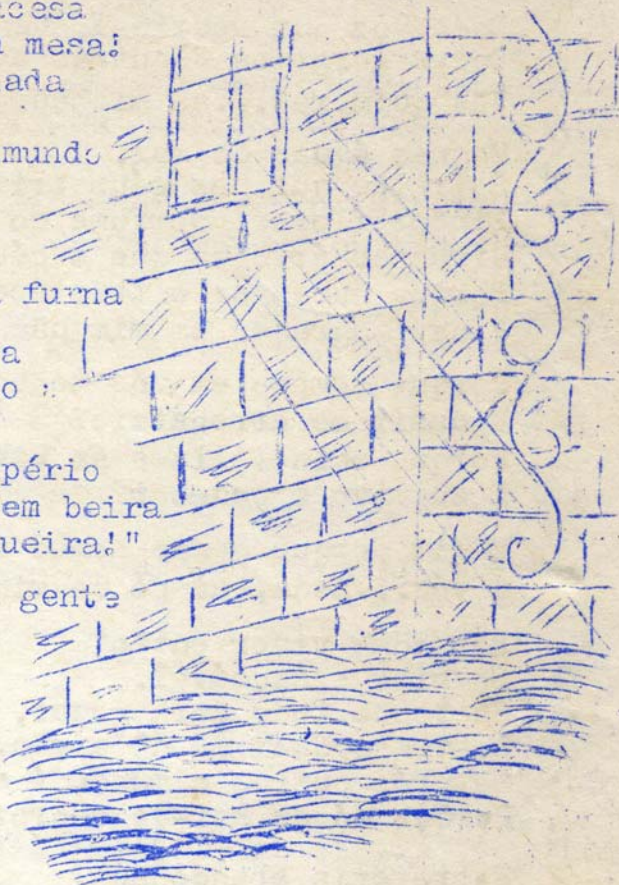 esa
mesa!
ada
mundo
furna
a
o :
pério
em beira
ueira!"
gente